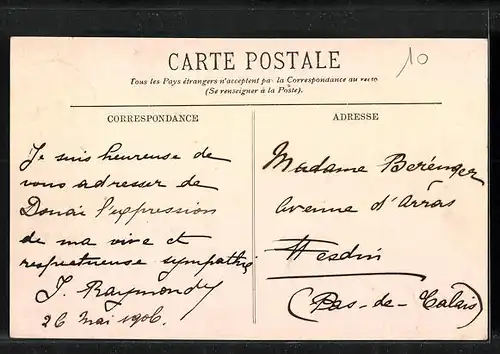 CARTE POSTALE
10
Tous les Pays étrangers n'acceptent pas la Correspondance au recto
(Se renseigner à la Poste).
CORRESPONDANCE
Je suis heureuse de
vous adresser de
Douai l'expression
de ma vive et
respectueuse sympathie
J. Raymondy
26 Mai 1906.
ADRESSE
Madame Berénger
Avenue d'Arras
Hesdin
(Pas-de-Calais)